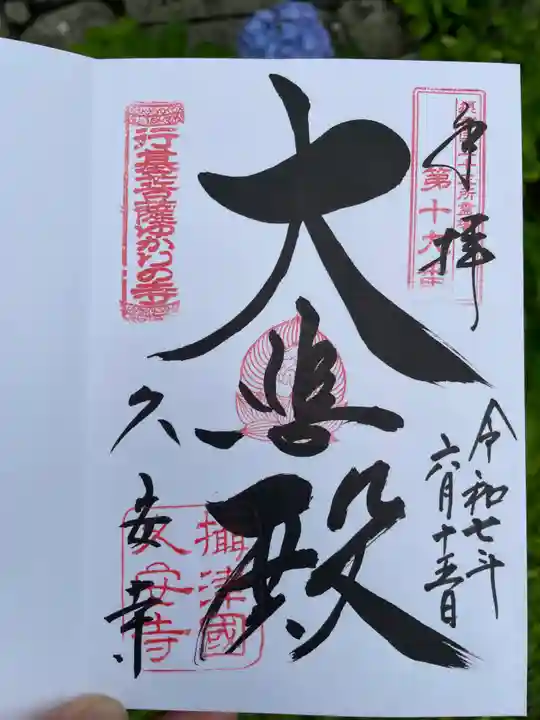 奉拝
第十九番
令和七年
六月十五日
大悲殿
行基菩薩ゆかりの寺
久安寺
攝津國
久安寺